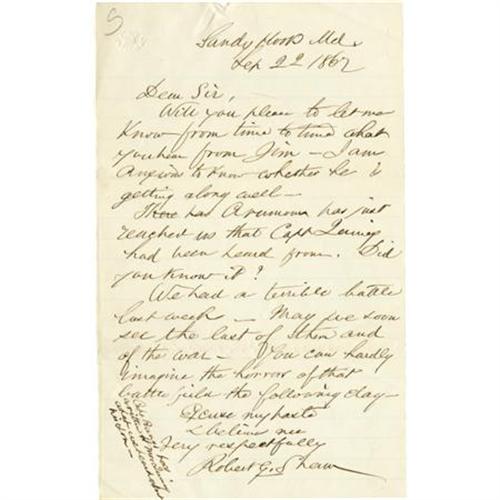 5
Sandy Hook Md.
Sep 22 1862
Dear Sir,
Will you please to let me
Know from time to time what
you hear from Jim - I am
Anxious to know whether he is
getting along well -
There has A rumour has just
reached us that Capt Quincy
had been heard from. Did
you know it?
We had a terrible battle
last week - May we soon
see the last of them and
of the war - You can hardly
imagine the horror of that
battle field the following day -
Excuse my haste
& believe me
Very respectfully
Robert G. Shaw